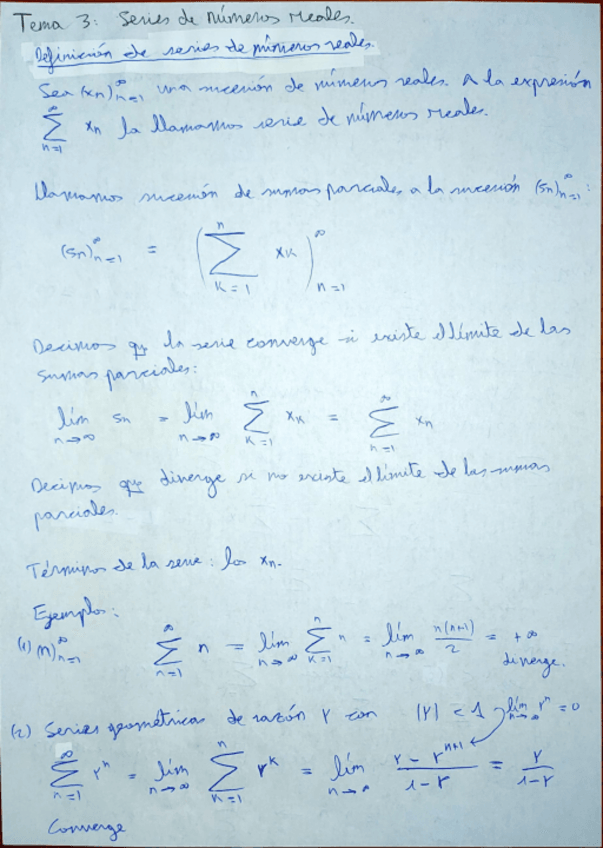 Tema 3: Series de números reales.
Definición de series de números reales.
Sea (xn)_{n=1}^{∞} una sucesión de números reales. A la expresión
∑_{n=1}^{∞} xn la llamamos serie de números reales.
Llamamos sucesión de sumas parciales a la sucesión (sn)_{n=1}^{∞}:
(sn)_{n=1}^{∞} = (∑_{k=1}^{n} xk)_{n=1}^{∞}
Decimos q la serie converge si existe el límite de las
sumas parciales:
lím_{n→∞} sn = lím_{n→∞} ∑_{k=1}^{n} xk = ∑_{n=1}^{∞} xn
Decimos que diverge si no existe el límite de las sumas
parciales.
Términos de la serie: los xn.
Ejemplo:
(1) (n)_{n=1}^{∞} ∑_{n=1}^{∞} n = lím_{n→∞} ∑_{k=1}^{n} n = lím_{n→∞} n(n+1)/2 = +∞
diverge.
(2) Series geométricas de razón r con |r| < 1 lím_{n→∞} r^n = 0
∑_{n=1}^{∞} r^n = lím_{n→∞} ∑_{k=1}^{n} r^k = lím_{n→∞} (r - r^{n+1})/(1-r) = r/(1-r)
Converge